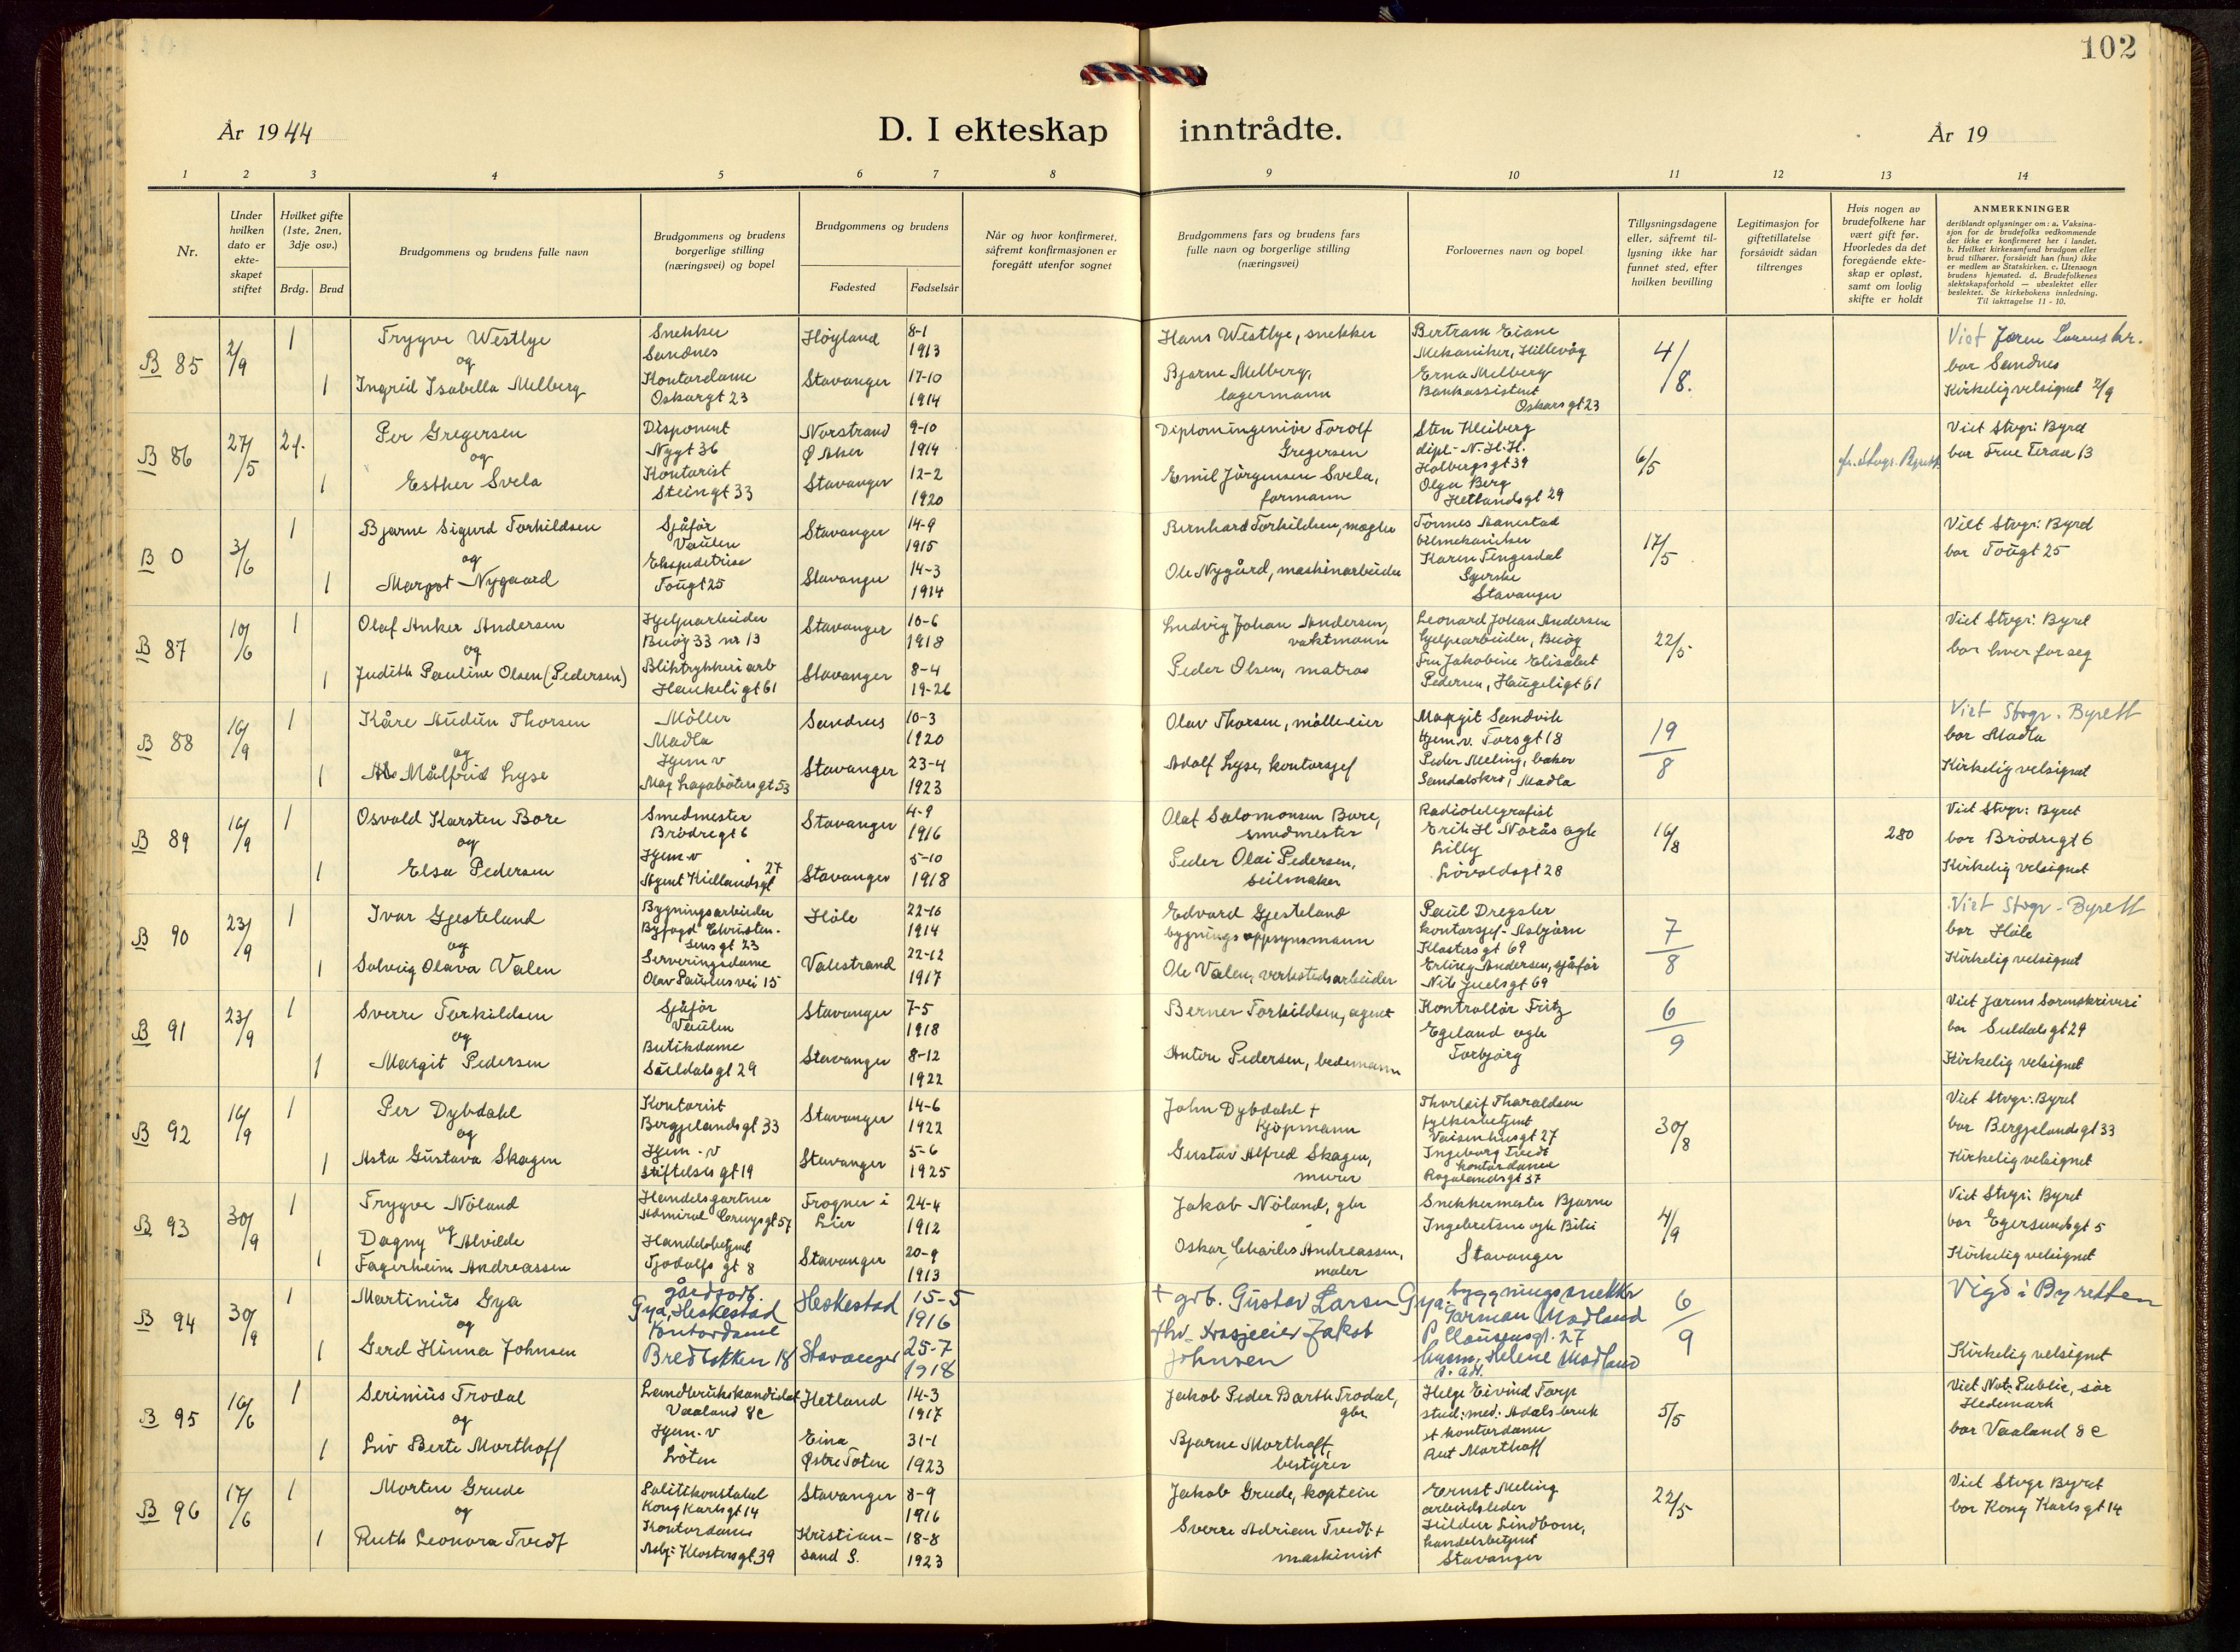 102
År 1944
D. I ekteskap inntrådte.
År 19
1 2 3 4 5 6 7 8 9 10 11 12 13 14
Nr.
Under hvilken dato er ekte-skapet stiftet
Hvilket gifte (1ste, 2nen, 3dje osv.)
Brdg. Brud
Brudgommens og brudens fulle navn
Brudgommens og brudens borgerlige stilling (næringsvei) og bopel
Brudgommens og brudens
Fødested Fødselsår
Når og hvor konfirmeret, såfremt konfirmasjonen er foregått utenfor sognet
Brudgommens fars og brudens fars fulle navn og borgerlige stilling (næringsvei)
Forlovernes navn og bopel
Tillysningsdagene eller, såfremt til-lysning ikke har funnet sted, efter hvilken bevilling
Legitimasjon for giftetillatelse forsåvidt sådan tiltrenges
Hvis nogen av brudefolkene har vært gift før. Hvorledes da det foregående ekte-skap er opløst, samt om lovlig skifte er holdt
ANMERKNINGER
deriblandt oplysninger om: a. Vaksina-sjon for de brudefolks vedkommende der ikke er konfirmeret her i landet. b. Hvilket kirkesamfund brudgom eller brud tilhører, forsåvidt han (hun) ikke er medlem av Statskirken. c. Utensogn brudens hjemsted. d. Brudefolkenes slektskapsforhold — ubeslektet eller beslektet. Se kirkebokens innledning. Til iakttagelse 11 - 10.
B 85 2/9 1 Trygve Westlye Snekker Sandnes Høyland 8-1 1913 Hans Westlye, snekker Bertram Eiane Mekaniker, Hillevåg 4/8.
og
1 Ingrid Isabella Melberg Kontordame Oskarsgt 23 Stavanger 17-10 1914 Bjarne Melberg, lagermann Erna Melberg Bankassistent Oskarsgt 23
Viet Jæren
bor Sandnes
Kirkelig velsignet 2/9
B 86 27/5 2 f. Per Gregersen Disponent Nygt 36 Norstrand Ø Aker 9-10 1914 Diplomingeniør Torolf Gregersen Sten Kleiberg dipl.- N.H.H. Holbergsgt 39 6/5
og
1 Esther Svela Kontorist Steingt 33 Stavanger 12-2 1920 Emil Jørgensen Svela, formann Olga Berg Hetlandsgt 29
Viet Stvgr: Byret
bor Frue Terase 13
B 0 3/6 1 Bjarne Sigurd Torkildsen Sjåfør Vaulen Stavanger 14-9 1915 Bernhard Torkildsen, megler Tønnes Aanestad bilmekaniker 17/5
og
1 Margot Nygaard Ekspeditrise Tougt 25 Stavanger 14-3 1914 Ole Nygård, maskinarbeider Karen Tengesdal Syerske Stavanger
Viet Stvgr: Byret
bor Tougt 25
B 87 10/6 1 Olaf Anker Andersen Hjelpearbeider Buøy 33 nr 13 Stavanger 10-6 1918 Ludvig Johan Andersen, vaktmann Leonard Johan Andersen hjelpearbeider, Buøy 22/5
og
1 Judith Pauline Olsen (Pedersen) Bliktrykkeriarb Haukeligt 61 Stavanger 8-4 19-26 Peder Olsen, matros Fru Jakobine Elisabet Pedersen, Haugeligt 61
Viet Stvgr: Byret
bor hver for seg
B 88 16/9 1 Kåre Audun Thorsen Møller Madla Sandnes 10-3 1920 Olav Thorsen, mølleeier Margit Sandvik Hjem.v. Torsgt 18 19/8
og
1 Målfrid Lyse Hjem v Mag Lagabøtersgt 53 Stavanger 23-4 1923 Adolf Lyse, kontorsjef Peder Meling, baker Sandalskrs, Madla
Viet Stvgr. Byrett
bor Madla
Kirkelig velsignet
B 89 16/9 1 Osvald Karsten Bore Smedmester Brødregt 6 Stavanger 4-9 1916 Olaf Salomonsen Bore, smedmester Radiotelegrafist Erik H Norås og fr Lilly Løvoldsgt 28 16/8 280
og
1 Elsa Pedersen Hjem-v Agent Kiellandsgt 27 Stavanger 5-10 1918 Peder Olai Pedersen, seilmaker
Viet Stvgr: Byret
bor Brødregt 6
Kirkelig velsignet
B 90 23/9 1 Ivar Gjesteland Bygningsarbeider Byfogd Christensensgt 23 Høle 22-10 1914 Edvard Gjesteland bygningsoppsynsmann Paul Dregsler kontorsjef - Asbjørn Klostersgt 69 7/8
og
1 Solveig Olava Valen Serveringsdame Olav Paulusvei 15 Valestrand 22-12 1917 Ole Valen, verkstedsarbeider Erling Andersen, sjåfør Nils Juelsgt 69
Viet Stvgr - Byrett
bor Høle
Kirkelig velsignet
B 91 23/9 1 Sverre Torkildsen Sjåfør Vaulen Stavanger 7-5 1918 Berner Torkildsen, agent Kontrollør Fritz Egeland og fr Torbjørg 6/9
og
1 Margit Pedersen Butikdame Suldalsgt 29 Stavanger 8-12 1922 Anton Pedersen, bedemann
Viet Jærens Sorenskriveri
bor Suldalsgt 29
Kirkelig velsignet
B 92 16/9 1 Per Dybdahl Kontorist Bergjelandsgt 33 Stavanger 14-6 1922 John Dybdahl + Kjøpmann Thorleif Tharaldsen fylkesbetjent Vaisenhusgt 27 30/8
og
1 Asta Gustava Skagen Hjem-v Stiftelsesgt 19 Stavanger 5-6 1925 Gustav Alfred Skagen, murer Ingeborg Tvedt kontordame Rogalandsgt 37
Viet Stvgr: Byret
bor Bergjelandsgt 33
Kirkelig velsignet
B 93 30/9 1 Trygve Nöland Handelsgartner Admiral Cruysgt 57 Frogner i Lier 24-4 1912 Jakob Nöland, gbr Snekkermester Bjarne Ingebretsen og fr Stavanger 4/9
og
1 Dagny Alvilde Fagerheim Andreassen Handelsbetjent Tjodolfs gt 8 Stavanger 20-9 1913 Oskar Charles Andreassen, maler
Viet Stvgr: Byret
bor Egersundsgt 5
Kirkelig velsignet
B 94 30/9 1 Martinius Gya gårdsarb. Gya, Heskestad Heskestad 15-5 1916 + grb. Gustav Larsen Gya byggningssnekker Torman Modland P Clausensgt. 27 6/9
og
1 Gerd Hinna Johnsen Kontordame Bredbakken 18 Stavanger 25-7 1918 fhv. Jakob Johnsen husm. Helene Modland s. ad.
Vigd i Byretten
Kirkelig velsignet
B 95 16/6 1 Serinius Trodal Landbrukskandidat Vaaland 8c Hetland 14-3 1917 Jakob Peder Barth Trodal, gbr Helge Eivind Torp stud: med: Ådalsbruk 5/5
og
1 Liv Berte Morthoff Hjem-v Løten Eina Østre Toten 31-1 1923 Bjarne Morthoff, bestyrer kontordame Rut Morthoff
Viet Not: Public, sør Hedemark
bor Vaaland 8c
B 96 17/6 1 Morten Grude Politikonstabel Kong Karlsgt 14 Stavanger 8-9 1916 Jakob Grude, kaptein Ernst Meling arbeidsleder 22/5
og
1 Ruth Leonora Tvedt Kontordame Asbj: Klostersgt 39 Kristian-sand S. 18-8 1923 Sverre Adrian Tvedt + maskinist Hildur Lindboe, handelsbetjent Stavanger
Viet Stvgr Byret
bor Kong Karls gt 14